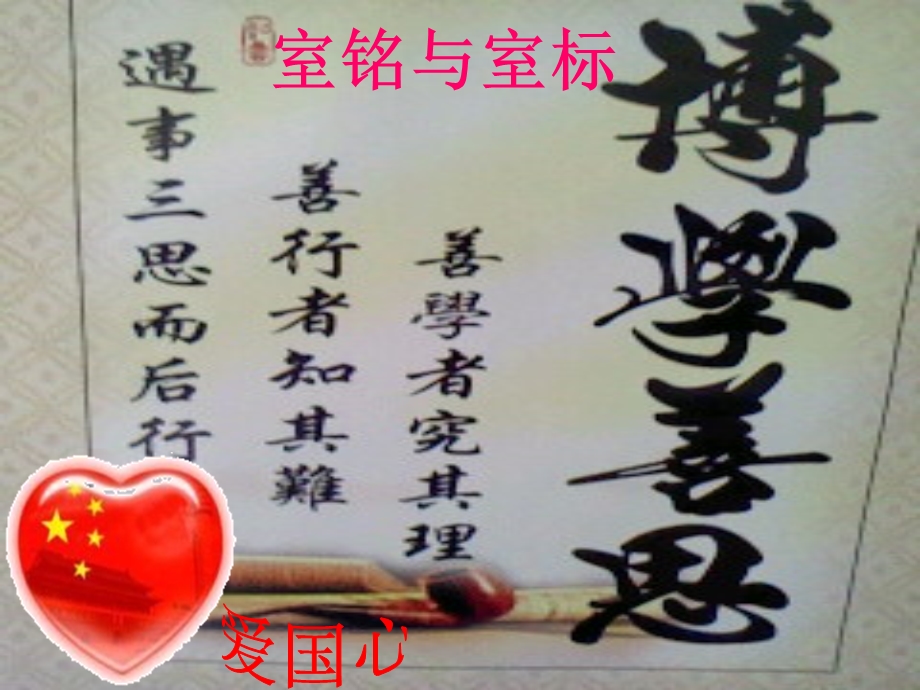 室铭与室标
博學善思
善學者究其理
善行者知其難
遇事三思而后行
爱国心